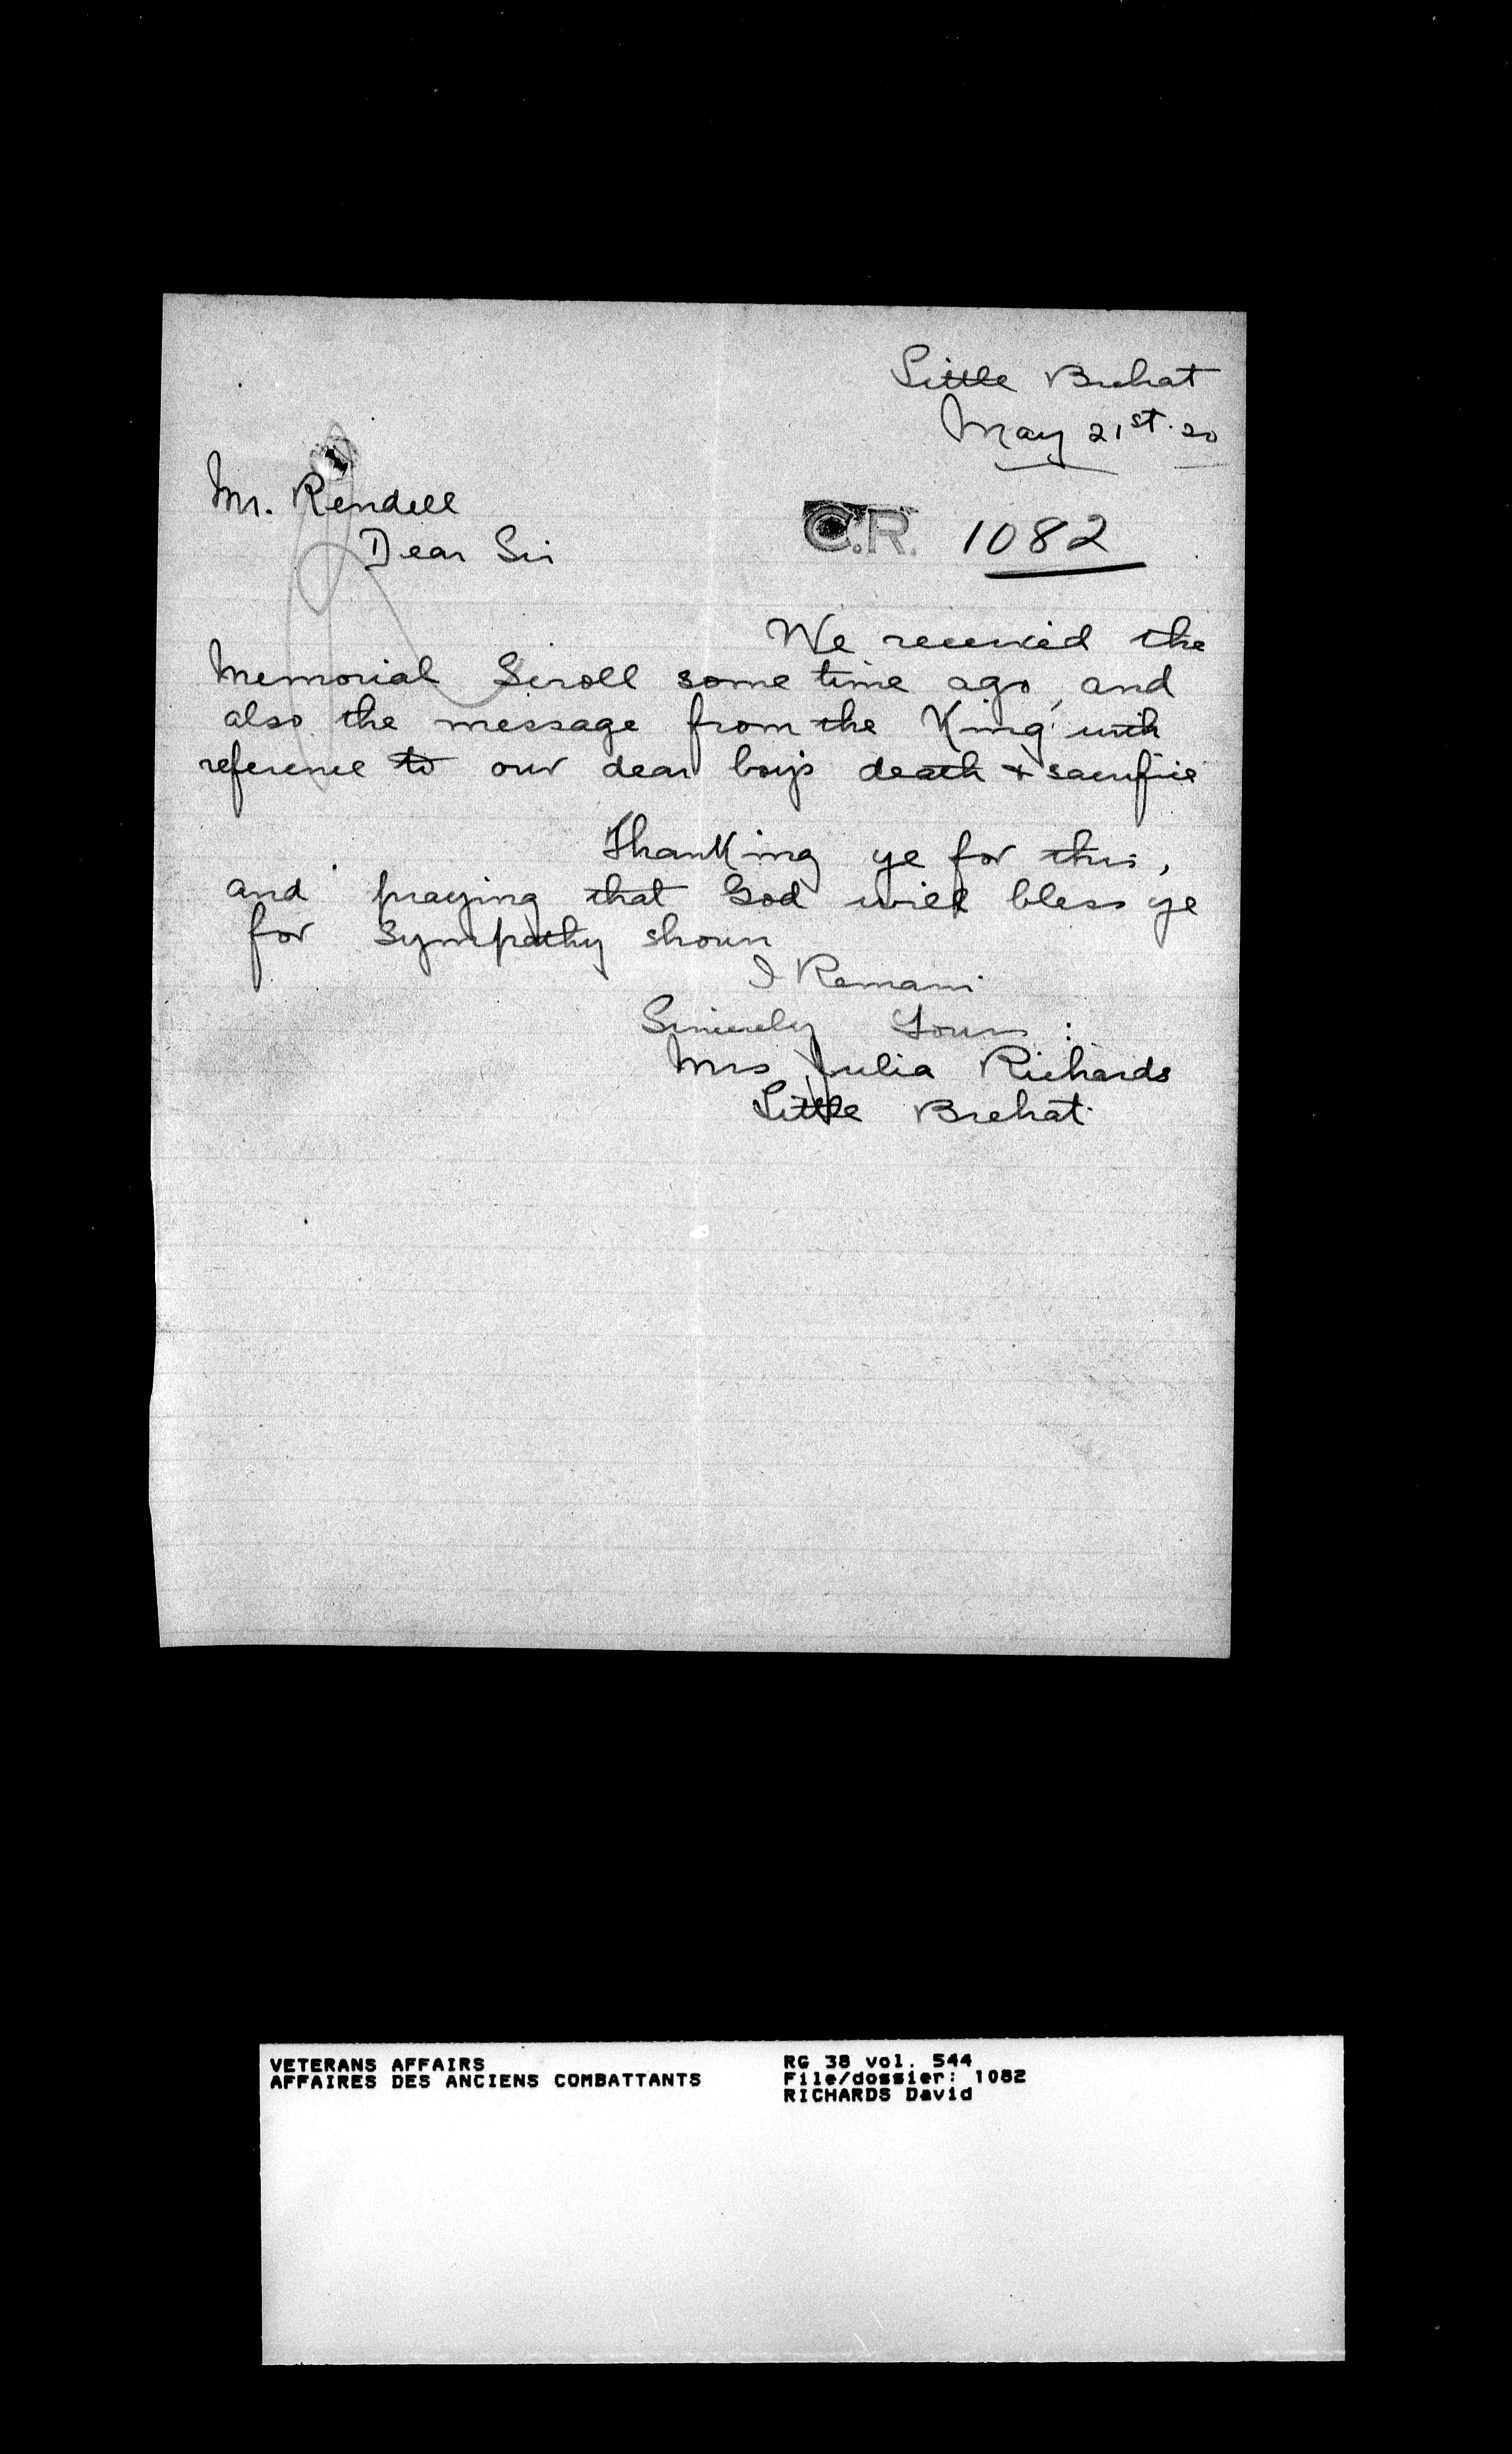 Little Brehat
May 21st. 20
Mr. Rendell
C.R. 1082
Dear Sir
We received the
Memorial Scroll some time ago, and
also the message from the King with
reference to our dear boy's death & sacrifice
Thanking ye for this,
and praying that God will bless ye
for sympathy shown
I Remain
Sincerely Yours :
Mrs Julia Richards
Little Brehat.
VETERANS AFFAIRS RG 38 vol. 544
AFFAIRES DES ANCIENS COMBATTANTS File/dossier: 1082
RICHARDS David